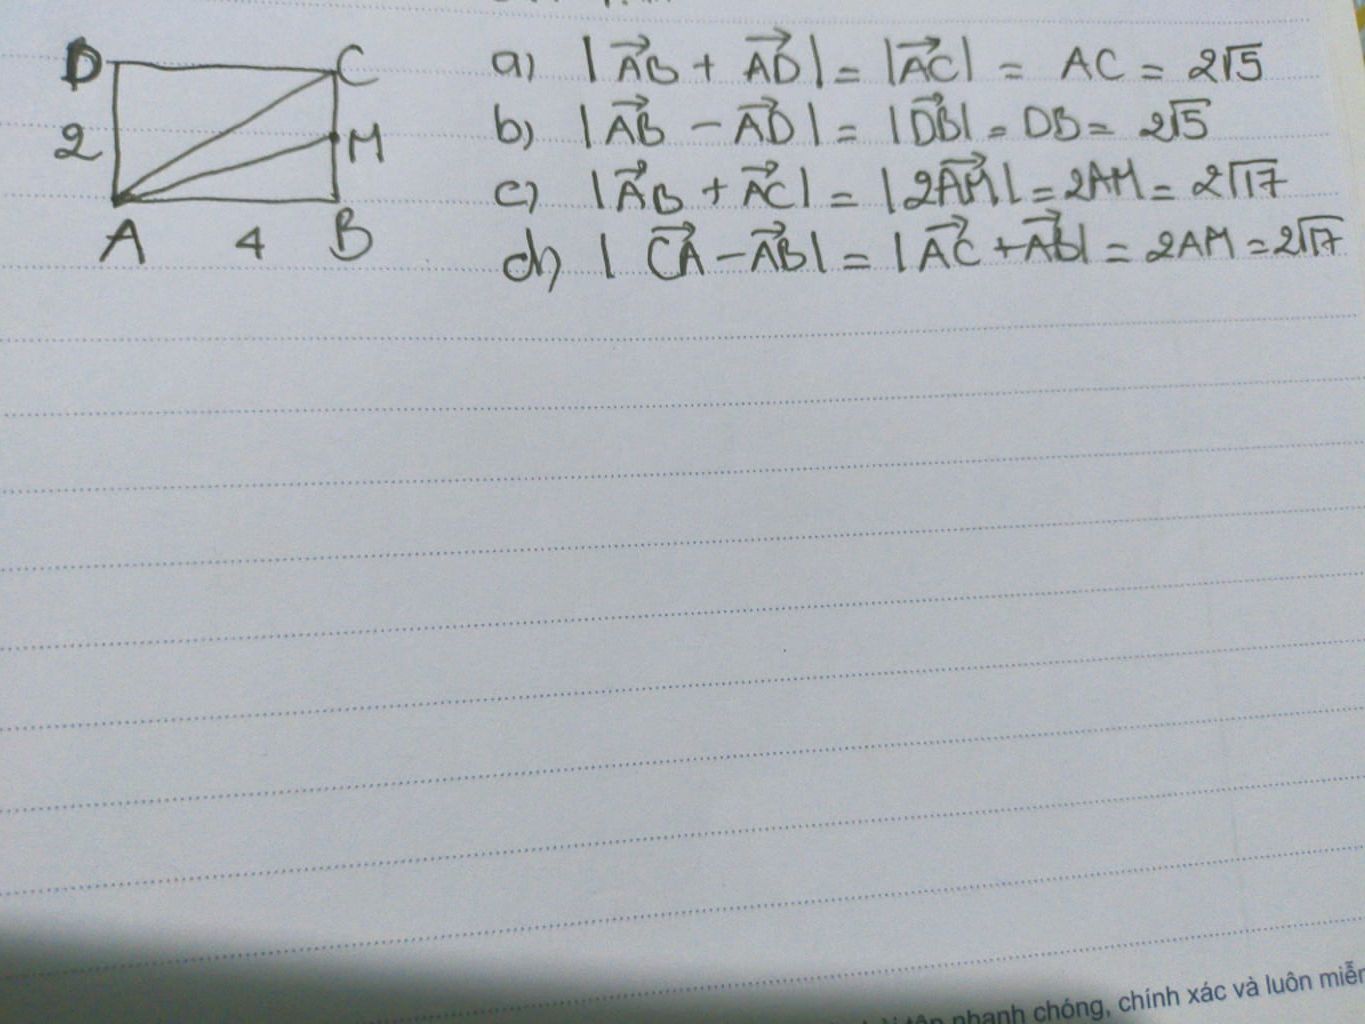 D C
2 M
A 4 B
a) |AB→ + AD→| = |AC→| = AC = 2√5
b) |AB→ - AD→| = |DB→| = DB = 2√5
c) |AB→ + AC→| = |2AM→| = 2AM = 2√17
d) | CA→ - AB→| = |AC→ + AB→| = 2AM = 2√17
nhanh chóng, chính xác và luôn miễn